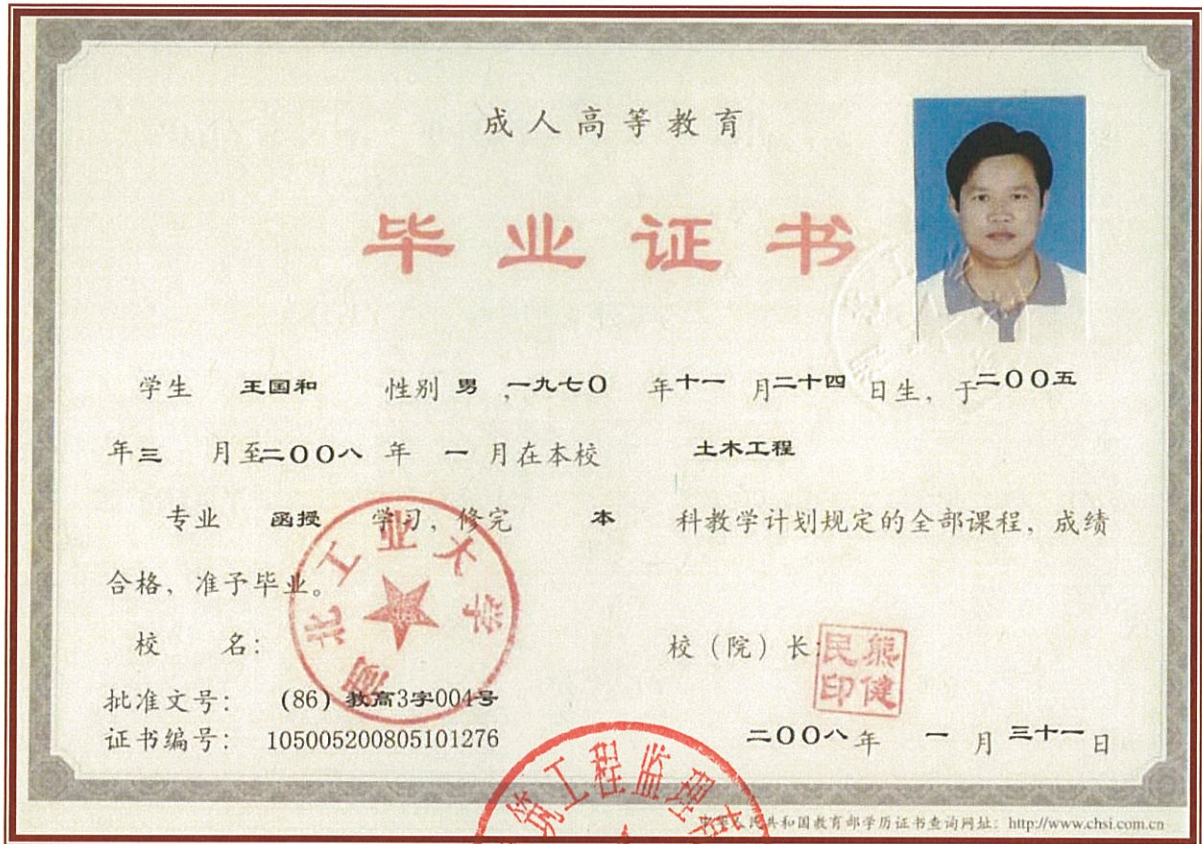 成人高等教育
毕业证书
学生 王国和 性别 男 ,一九七〇 年十一 月二十四 日生, 于二〇〇五
年三 月至二〇〇八 年 一 月在本校 土木工程
专业 函授 学习, 修完 本 科教学计划规定的全部课程, 成绩
合格, 准予毕业。
湖北工业大学
校 名:
校（院）长:
熊健民印
批准文号: (86) 教高3字004号
证书编号: 105005200805101276
二〇〇八 年 一 月 三十一 日
筑工程监理
中华人民共和国教育部学历证书查询网址: http://www.chsi.com.cn